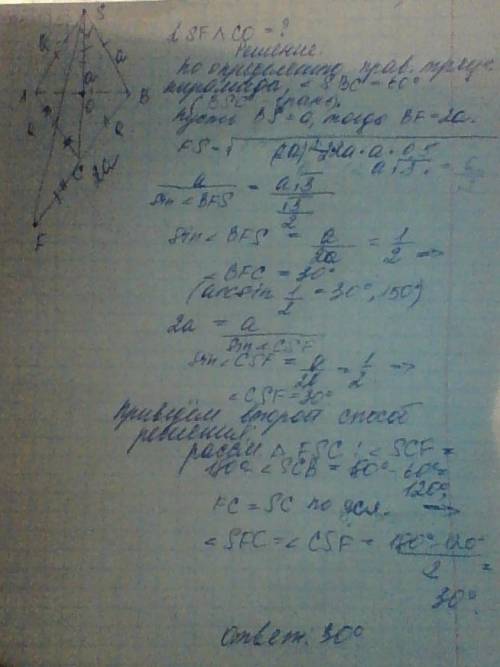 ∠ SF ∧ CO = ?
Решение.
По определению прав. треуг.
пирамиды, ∠ SBC = 60°
(BSC - грань).
Пусть BS = a, тогда BF = 2a.
FS = √ (2a)² 2a · a · 0,5
a√3
a / sin ∠ BFS = a√3 / (√3 / 2)
sin ∠ BFS = a / 2a = 1 / 2 =>
∠ BFC = 30°
(arcsin 1/2 = 30°, 150°)
2a = a / sin ∠ CSF
sin ∠ CSF = a / 2a = 1 / 2 =>
∠ CSF = 30°
Приведём второй способ
решения.
рассм. △ FSC: ∠ SCF =
180° - ∠ SCB = 180° - 60° =
120°
FC = SC по усл. =>
∠ SFC = ∠ CSF = (180° - 120°) / 2 =
30°
Ответ: 30°
S
a
a
A
a
O
B
a
C
2a
F